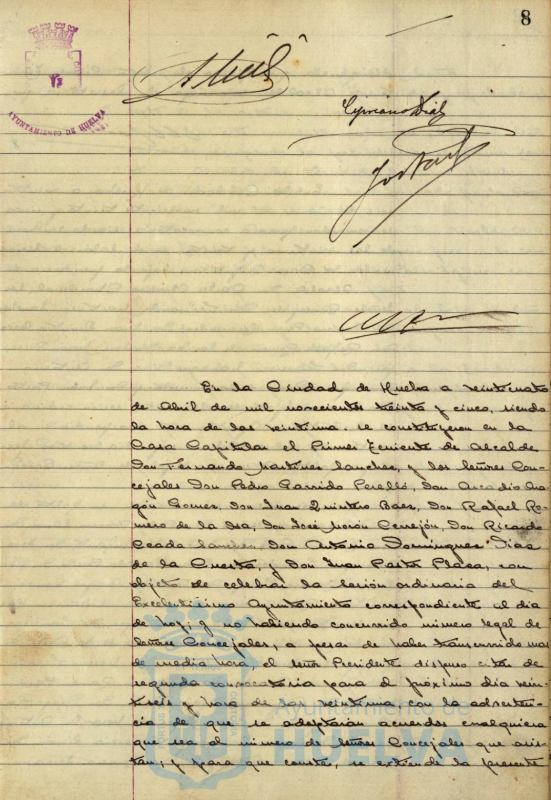 8
AYUNTAMIENTO DE HUELVA
Cipriano Dial
En la Ciudad de Huelva a veinticuatro
de Abril de mil novecientos treinta y cinco, siendo
la hora de las veintiuna se constituyeron en la
Casa Capitular el Primer Teniente de Alcalde
Don Fernando Martinez Sanchez, y los Señores Con-
cejales Don Pedro Garrido Perelló, Don Arcadio Ara-
gón Gomez, Don Juan Quintero Baez, Don Rafael Ro-
mero de la Isa, Don José Morón Cerrejón, Don Ricardo
Ceada Sanchez, Don Antonio Dominguez Dias
de la Cuesta, y Don Juan Plaza, con
objeto de celebrar la sesión ordinaria del
Excelentísimo Ayuntamiento correspondiente al dia
de hoy; y no habiendo concurrido número legal de
Señores Concejales, a pesar de haber transcurrido mas
de media hora, el señor Presidente dispuso citar de
segunda convocatoria para el próximo dia vein-
tiseis y hora de las veintiuna con la adverten-
cia de que se adoptarán acuerdos cualquiera
que sea el número de Señores Concejales que asis-
tan; y para que conste, se extiende la presente
Ayuntamiento de
HUELVA